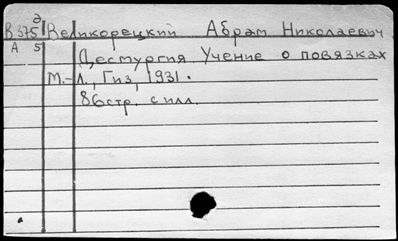 В 375 а Великорецкий Абрам Николаевич
А 5 Десмургия. Учение о повязках
М.-Л., Гиз, 1931.
86 стр. с илл.